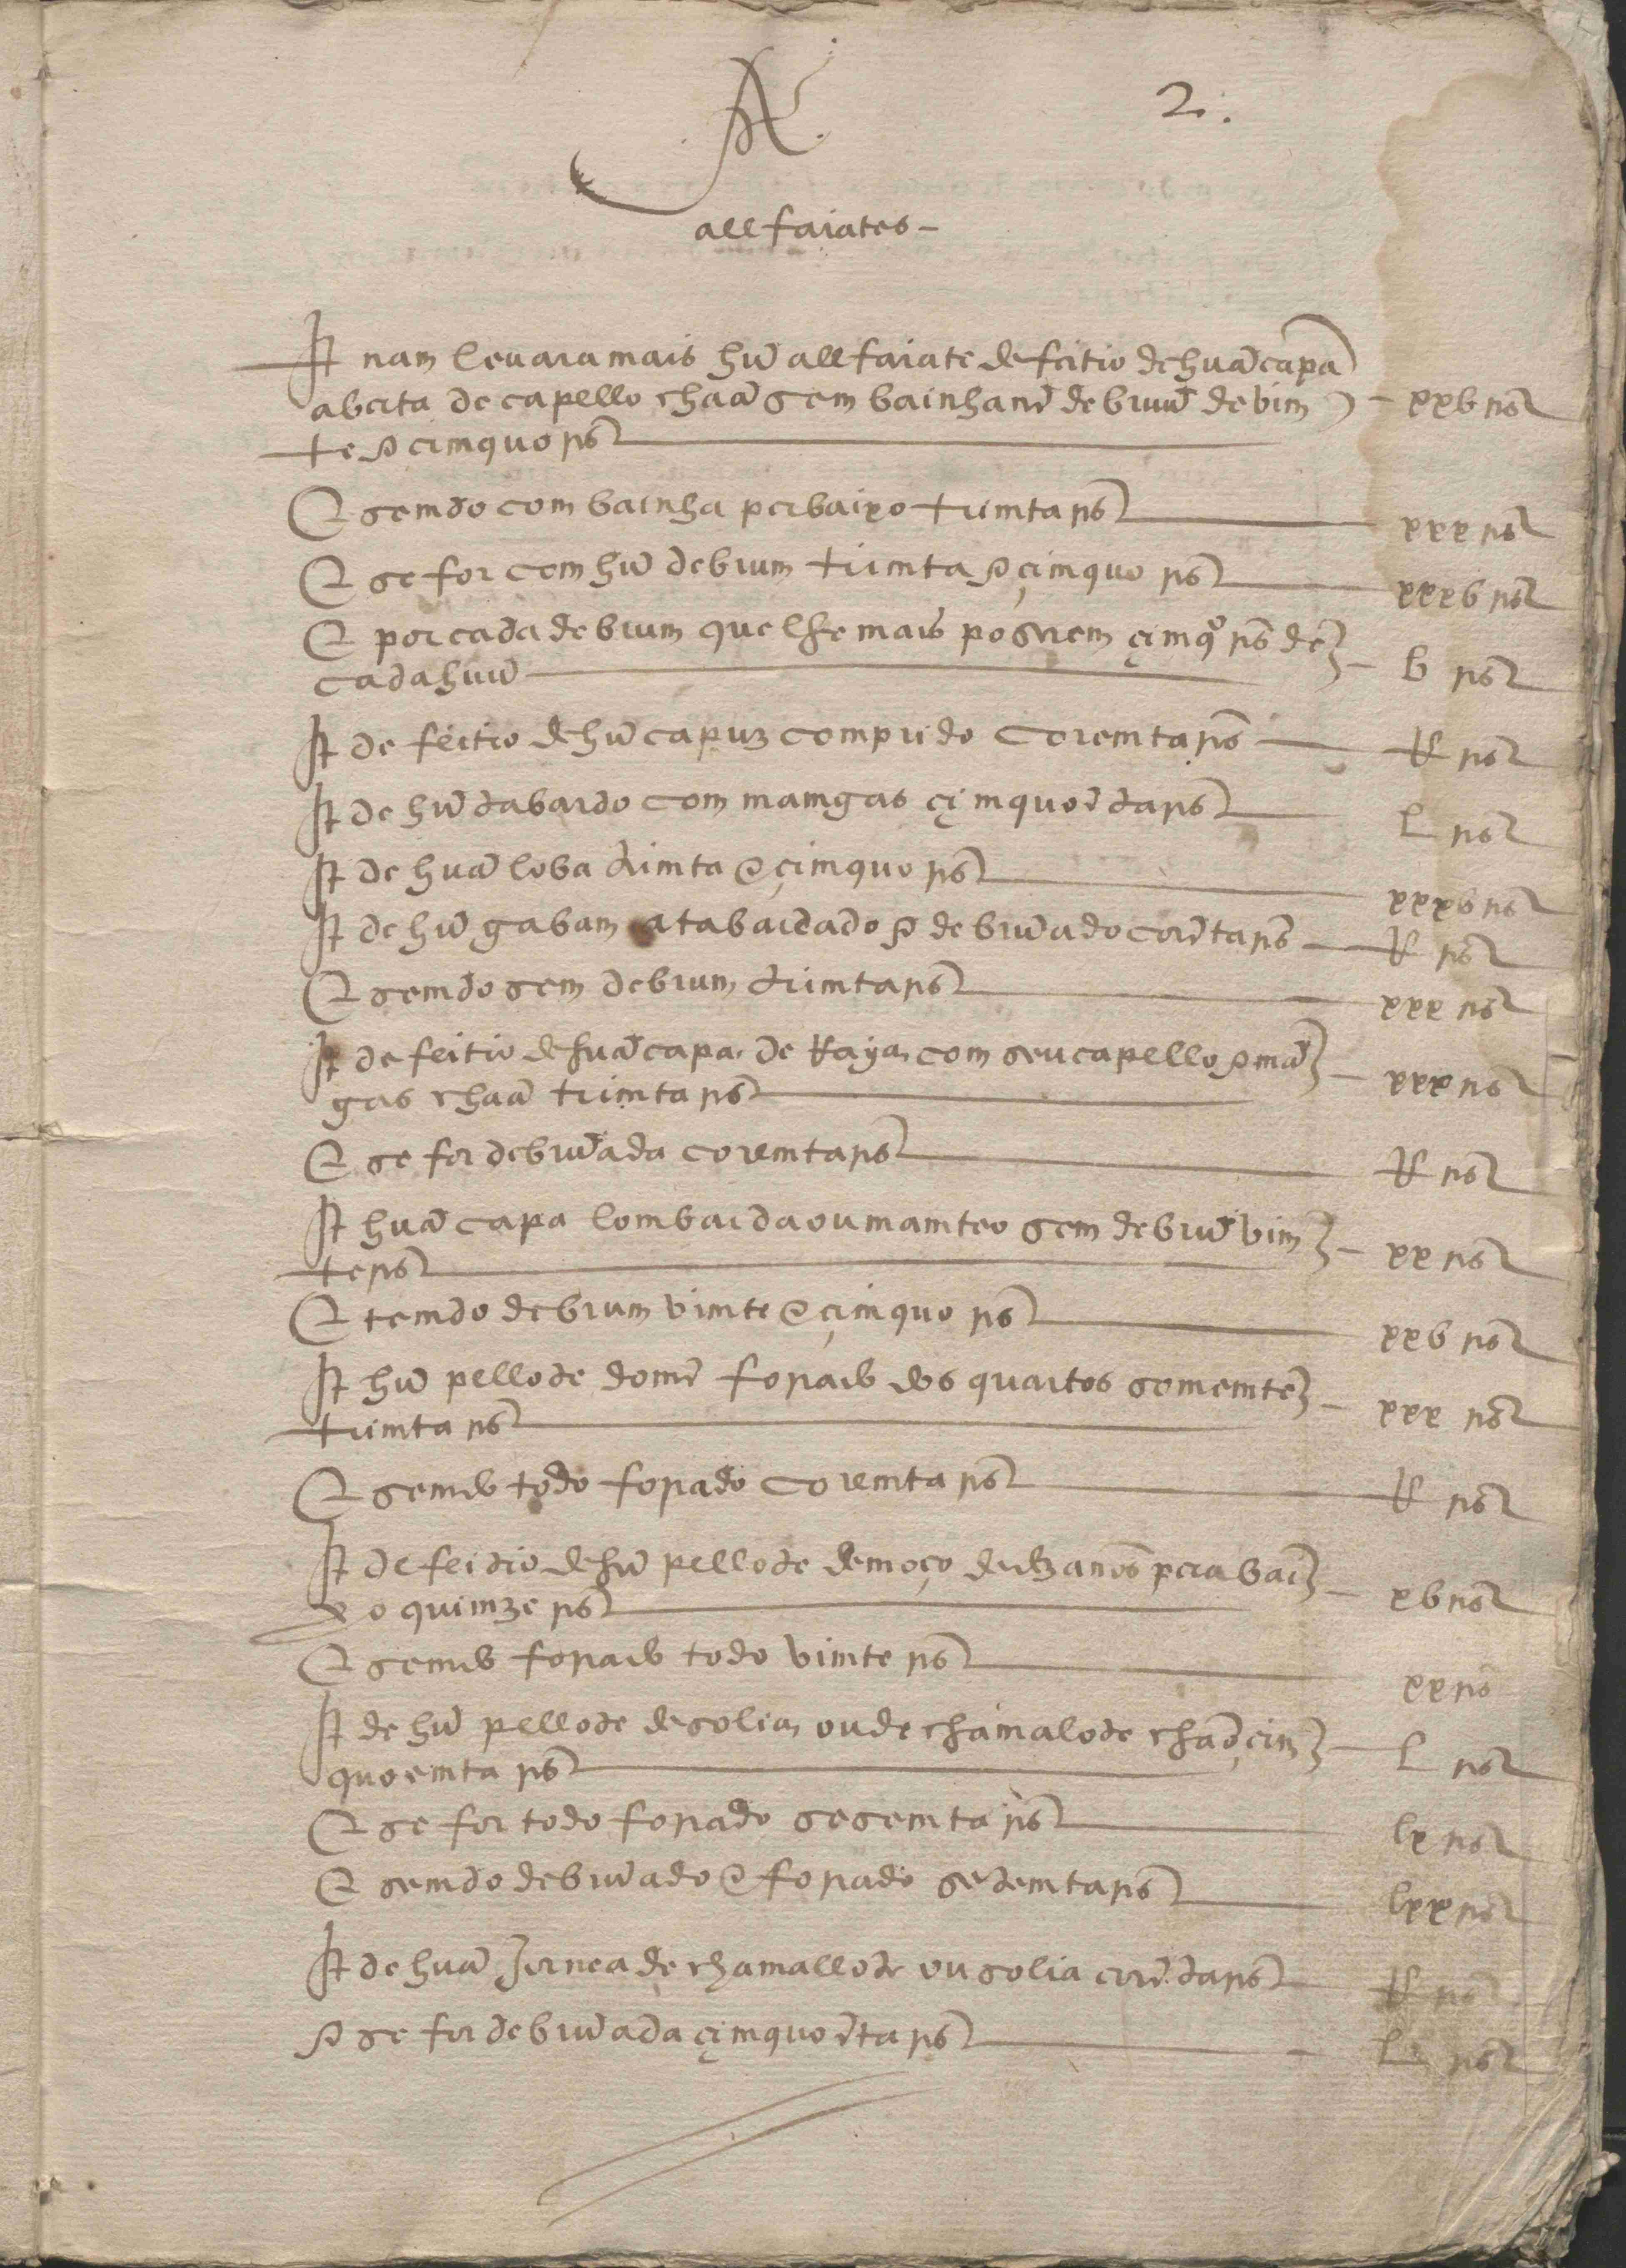 A
2.
allfaiates –
It nam leuara mais hũ allfaiate de feitio de huã capa
aberta de capello chaã sem bainha nẽ debruũ de vim – xxb rs
te & cimquo rs
E semdo com bainha per baixo trimta rs xxx rs
E se for com hũ debrum trimta & çimquo rs xxxb rs
E por cada debrum que lhe mais poserem çimqo rs de – b rs
cada huũ
It de feitio de hũ capuz comprido coremta rs R rs
It de hũ tabardo com mamgas çimquoẽta rs L rs
It de huã loba trimta & çimquo rs xxxb rs
It de hũ gabam atabardado & debruũado corẽta rs R rs
E semdo sem debrum trimta rs xxx rs
It de feitio de huã capa de Raya com seu capello & mã – xxx rs
gas chaã trimta rs
E se for debruũada coremta rs R rs
It huã capa lombarda ou mamteo sem debruũ vim – xx rs
te rs
E temdo debrum vimte & çimquo rs xxb rs
It hũ pellote domẽ forrado dos quartos somemte – xxx rs
trimta rs
E semdo todo forrado coremta rs R rs
It de feitio de hũ pellote de moço de dez anos pera bai – xb rs
xo quimze rs
E semdo forrado todo vimte rs xx rs
It de hũ pellote de solia ou de chamalote chaão çim – L rs
quoemta rs
E se for todo forrado sesemta rs Lx rs
E semdo debruũado & forrado setemta rs Lxx rs
It de huã Jornea de chamallote ou solia corẽta rs R rs
& se for debruũada çimquoẽta rs L rs